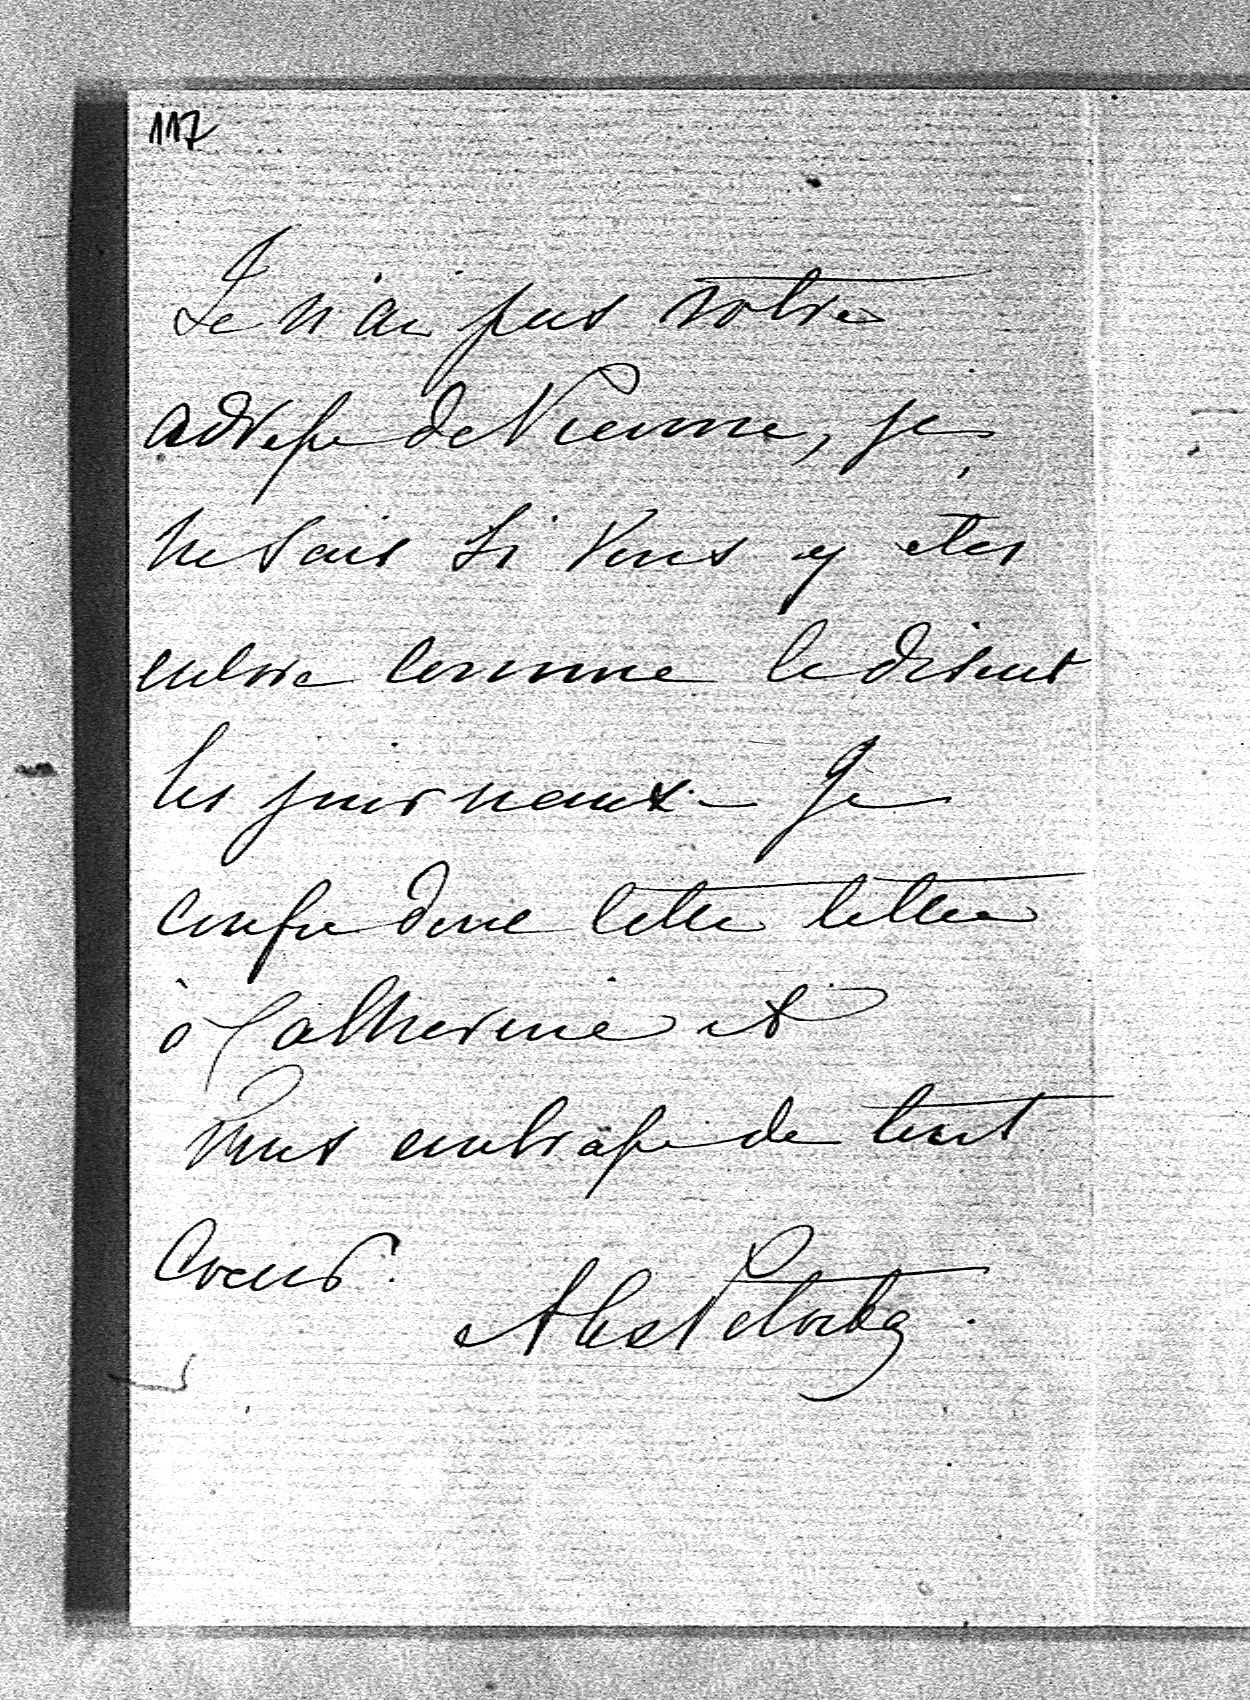 117
Je n'ai pas votre
adresse de Vienne, je
ne sais si vous y etes
encore comme le disent
les journaux – Je
confie donc cette lettre
à Catherine et
vous embrasse de tout
coeur.